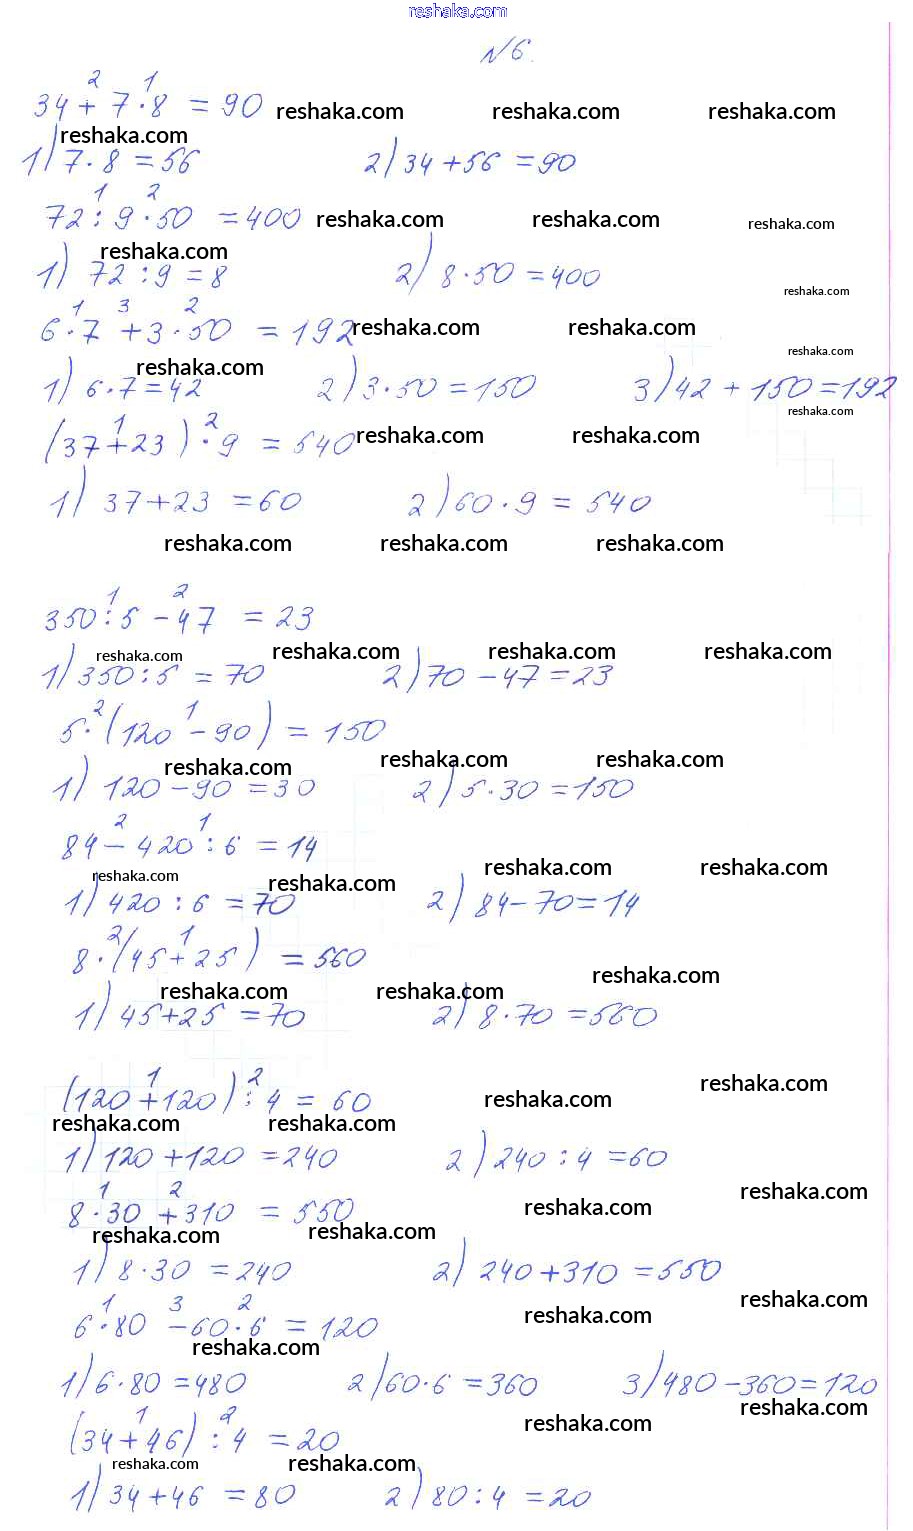 reshaka.com
№6.
2 1
34 + 7 · 8 = 90 reshaka.com reshaka.com reshaka.com
reshaka.com
1) 7 · 8 = 56 2) 34 + 56 = 90
1 2
72 : 9 · 50 = 400 reshaka.com reshaka.com reshaka.com
reshaka.com
1) 72 : 9 = 8 2) 8 · 50 = 400
reshaka.com
1 3 2
6 · 7 + 3 · 50 = 192 reshaka.com reshaka.com
reshaka.com reshaka.com
1) 6 · 7 = 42 2) 3 · 50 = 150 3) 42 + 150 = 192
reshaka.com
1 2
(37 + 23) · 9 = 540 reshaka.com reshaka.com
1) 37 + 23 = 60 2) 60 · 9 = 540
reshaka.com reshaka.com reshaka.com
1 2
350 : 5 - 47 = 23
reshaka.com reshaka.com reshaka.com reshaka.com
1) 350 : 5 = 70 2) 70 - 47 = 23
2 1
5 · (120 - 90) = 150
reshaka.com reshaka.com reshaka.com
1) 120 - 90 = 30 2) 5 · 30 = 150
2 1
84 - 420 : 6 = 14
reshaka.com reshaka.com reshaka.com reshaka.com
1) 420 : 6 = 70 2) 84 - 70 = 14
2 1
8 · (45 + 25) = 560
reshaka.com reshaka.com reshaka.com
1) 45 + 25 = 70 2) 8 · 70 = 560
1 2
(120 + 120) : 4 = 60 reshaka.com reshaka.com
reshaka.com reshaka.com
1) 120 + 120 = 240 2) 240 : 4 = 60
1 2
8 · 30 + 310 = 550 reshaka.com reshaka.com
reshaka.com reshaka.com
1) 8 · 30 = 240 2) 240 + 310 = 550
1 3 2
6 · 80 - 60 · 6 = 120 reshaka.com reshaka.com
reshaka.com
1) 6 · 80 = 480 2) 60 · 6 = 360 3) 480 - 360 = 120
1 2
(34 + 46) : 4 = 20 reshaka.com reshaka.com
reshaka.com reshaka.com
1) 34 + 46 = 80 2) 80 : 4 = 20